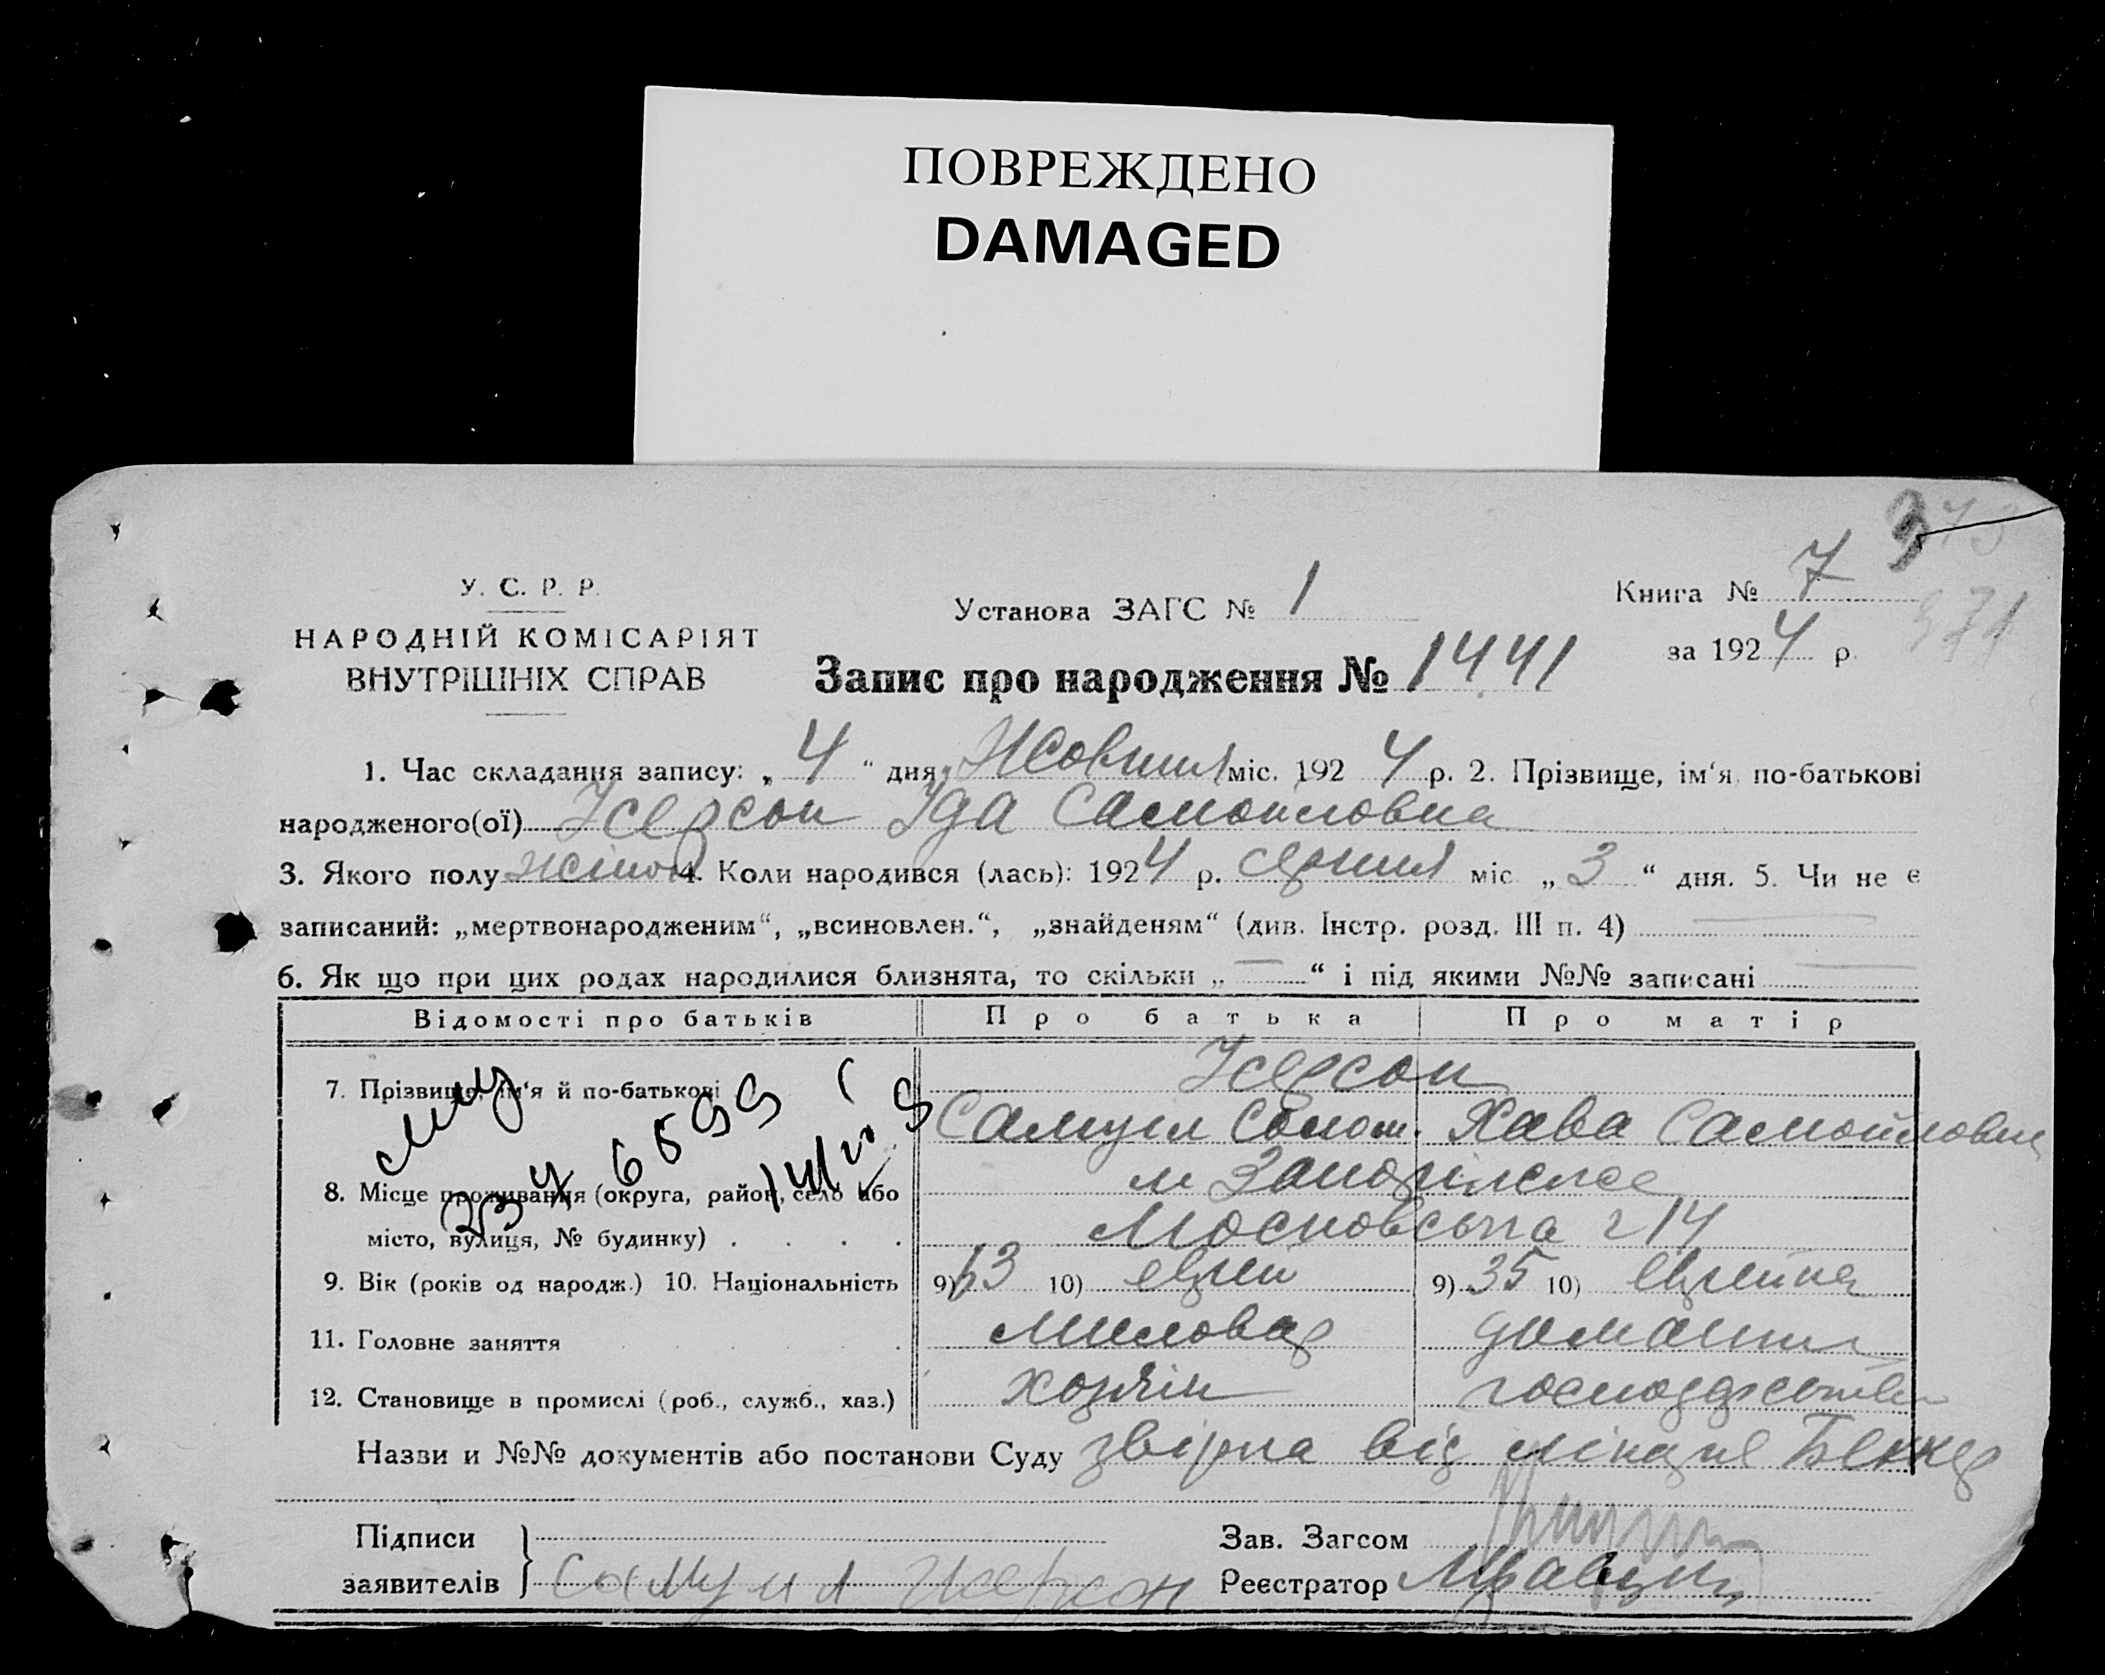 ПОВРЕЖДЕНО
DAMAGED
У. С. Р. Р.
НАРОДНІЙ КОМІСАРІЯТ
ВНУТРІШНІХ СПРАВ
Установа ЗАГС № 1
Книга № 7
за 1924 р.
Запис про народження № 1441
1. Час складання запису: „ 4 “ дня Жовтня міс. 1924 р. 2. Прізвище, ім‘я по-батькові
народженого(ої) Ідa Самойловна
3. Якого полу жіноч 4. Коли народився (лась): 1924 р. серпня міс „ 3 “ дня. 5. Чи не є
записаний: „мертвонародженим“, „всиновлен.“, „знайденям“ (див. Інстр. розд. III п. 4)
6. Як що при цих родах народилися близнята, то скільки „ — “ і під якими №№ записані —
Відомості про батьків Про батька Про матір
7. Прізвище, ім‘я й по-батькові
Самуїл Хава Самойловна
8. Місце проживання (округа, район, село або м Запоріжжє
місто, вулиця, № будинку) Московська 14
9. Вік (років од народж.) 10. Національність 9) 10) єврей 9) 35 10) єврейка
11. Головне заняття миловар домашнє
12. Становище в промислі (роб., служб., хаз.) хазяїн господарство
Назви и №№ документів або постанови Суду від
Підписи
заявителів Самуил
Зав. Загсом
Реєстратор